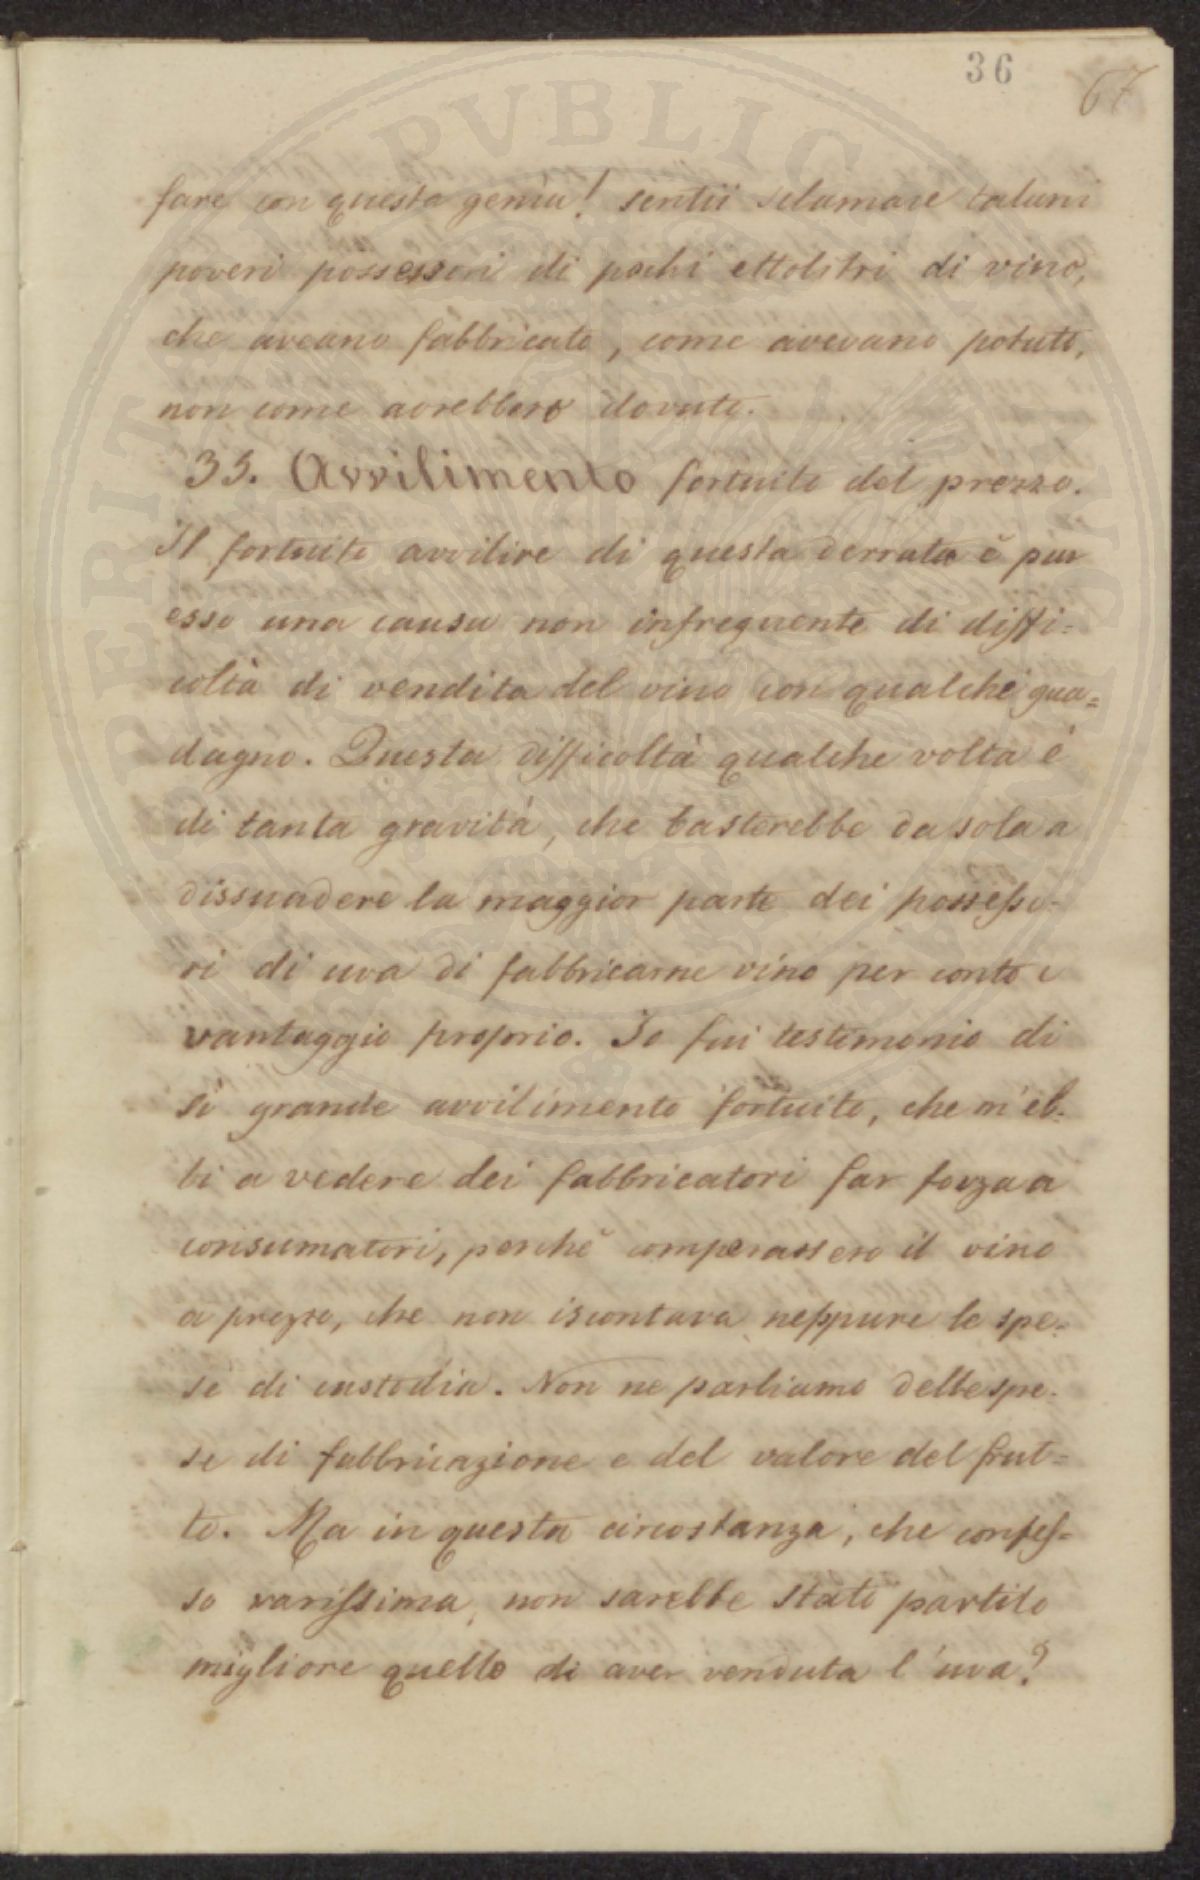 36
67
fare con questa genìa! sentii sclamare taluni
poveri possessori di pochi ettolitri di vino,
che aveano fabbricato, come avevano potuto,
non come avrebbero dovuto.
33. Avvilimento fortuito del prezzo.
Il fortuito avvilire di questa derrata è pur
esso una causa non infrequente di diffi=
coltà di vendita del vino con qualche gua=
dagno. Questa difficoltà qualche volta è
di tanta gravità, che basterebbe da sola a
dissuadere la maggior parte dei possesso-
ri di uva di fabbricarne vino per conto e
vantaggio proprio. Io fui testimonio di
sì grande avvilimento fortuito, che m'eb-
bi a vedere dei fabbricatori far forza a
consumatori, perchè comperassero il vino
a prezzo, che non iscontava neppure le spe-
se di custodia. Non ne parliamo delle spe-
se di fabbricazione e del valore del frut=
to. Ma in questa circostanza, che confes=
so rarissima, non sarebbe stato partito
migliore quello di aver venduta l'uva?
PVBLIC